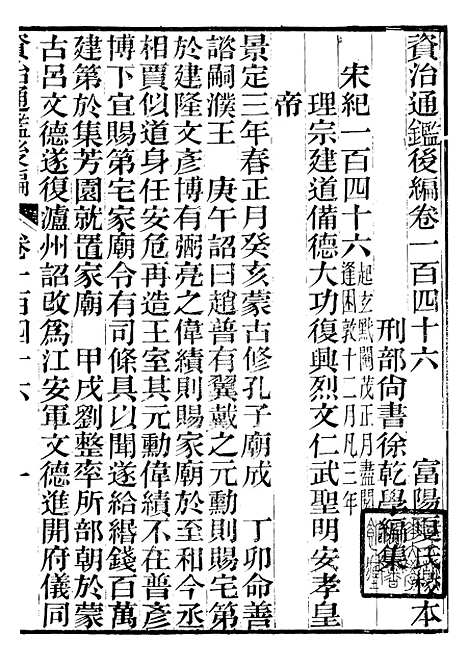 資治通鑑後編卷一百四十六　富陽夏氏校本
刑部尚書徐乾學編集
宋紀一百四十六起玄黓閹茂正月盡閼逢困敦十二月凡三年
理宗建道備德大功復興烈文仁武聖明安孝皇
帝
景定三年春正月癸亥蒙古修孔子廟成　丁卯命善
諮嗣濮王　庚午詔曰趙普有翼戴之元勳則賜宅第
於建隆文彥博有弼亮之偉績則賜家廟於至和今丞
相賈似道身任安危再造王室其元勳偉績不在普彥
博下宜賜第宅家廟令有司條具以聞遂給緡錢百萬
建第於集芳園就置家廟　甲戌劉整率所部朝於蒙
古呂文德遂復瀘州詔改爲江安軍文德進開府儀同
資治通鑑後編
卷一百四十六
一